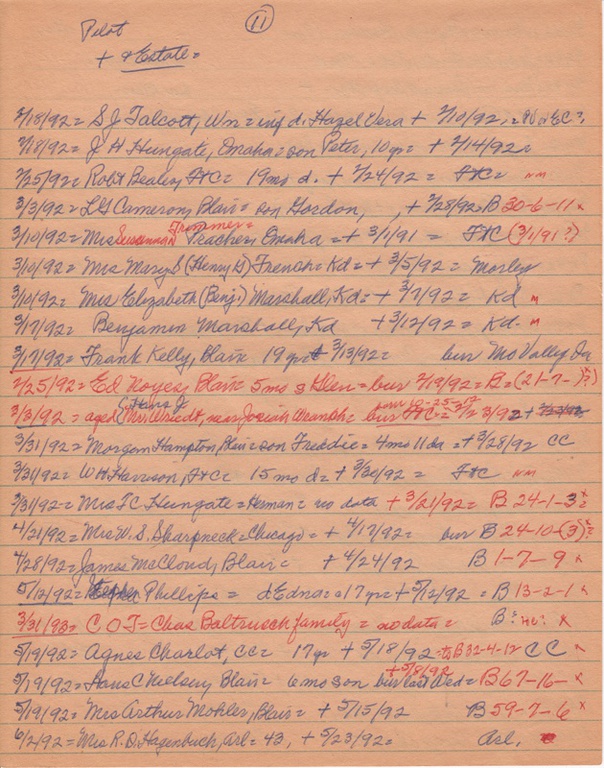 11
Pilot
+ & Estate =
2/18/92 = S J Talcott, Wn = inf d. Hazel Vera + 2/10/92, = ?
2/18/92 = J H Hungate, Omaha = son Peter, 10 yr = + 2/14/92 =
2/25/92 = Robt Beales, FtC = 19 mo d. + 2/24/92 = FtC = NM
3/3/92 = LG Cameron, Blair = son Gordon, , + 2/28/92 B 30-6-11 x
Trimmer =
3/10/92 = Mrs Susannah Peachey, Omaha = + 3/1/91 = FtC (3/1/91?)
3/10/92 = Mrs Mary S (Henry G) French = Kd = + 3/5/92 = Morley
3/10/92 = Mrs Elizabeth (Benj.) Marshall, Kd = + 3/7/92 = Kd M
3/17/92 = Benjamin Marshall, Kd + 3/12/92 = Kd. M
3/17/92 = Frank Kelly, Blair 19 yr + 3/13/92 = bur Mo Valley, Ia
2/25/92 = Ed Noyes, Blair = 5 mo s Glen = bur 2/19/92 = B = (21-7- )? x
Hans J
3/3/92 = aged Mr. Wriedt, near Josiah = bur FtC = 3/92 +
3/31/92 = Morgan Hampton, Blair = son Freddie = 4 mo 11 da = + 3/28/92 CC
3/31/92 = W H Harrison, FtC = 15 mo d = + 3/30/92 = FtC NM
3/31/92 = Mrs TC Hungate = Herman = no data + 3/21/92 = B 24-1-3 x?
4/21/92 = Mrs W. S. Sharpneck = Chicago = + 4/17/92 = bur B 24-10-(3) x?
4/28/92 = James McCloud, Blair = + 4/24/92 B 1-7-9 x
5/12/92 = Phillips = d Edna = 17 yr = + 5/12/92 = B 13-2-1 x
3/31/93 = C O T = Chas Baltrusch family = no data = B: no: x
5/19/92 = Agnes Charlot, CC = 17 yr + 5/18/92 = B 32-4-12 CC x
+ 5/8/92
5/19/92 = Hans C Nielsen, Blair = 6 mo son bur last Wed = B 67-16- x
5/19/92 = Mrs Arthur Mohler, Blair = + 5/15/92 B 59-7-6 x
6/2/92 = Mrs R. D. Hagenbuch, Arl = 43, + 5/23/92 = Arl.